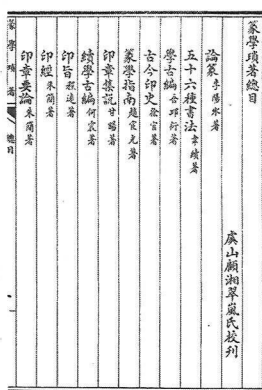 篆學瑣著總目
虞山顧湘翠嵐氏校刊
論篆李陽冰著
五十六種書法韋續著
學古編吾邱衍著
古今印史徐官著
篆學指南趙宧光著
印章集說甘暘著
續學古編何震著
印旨程遠著
印經朱簡著
印章要論朱簡著
篆學瑣著
總目
一